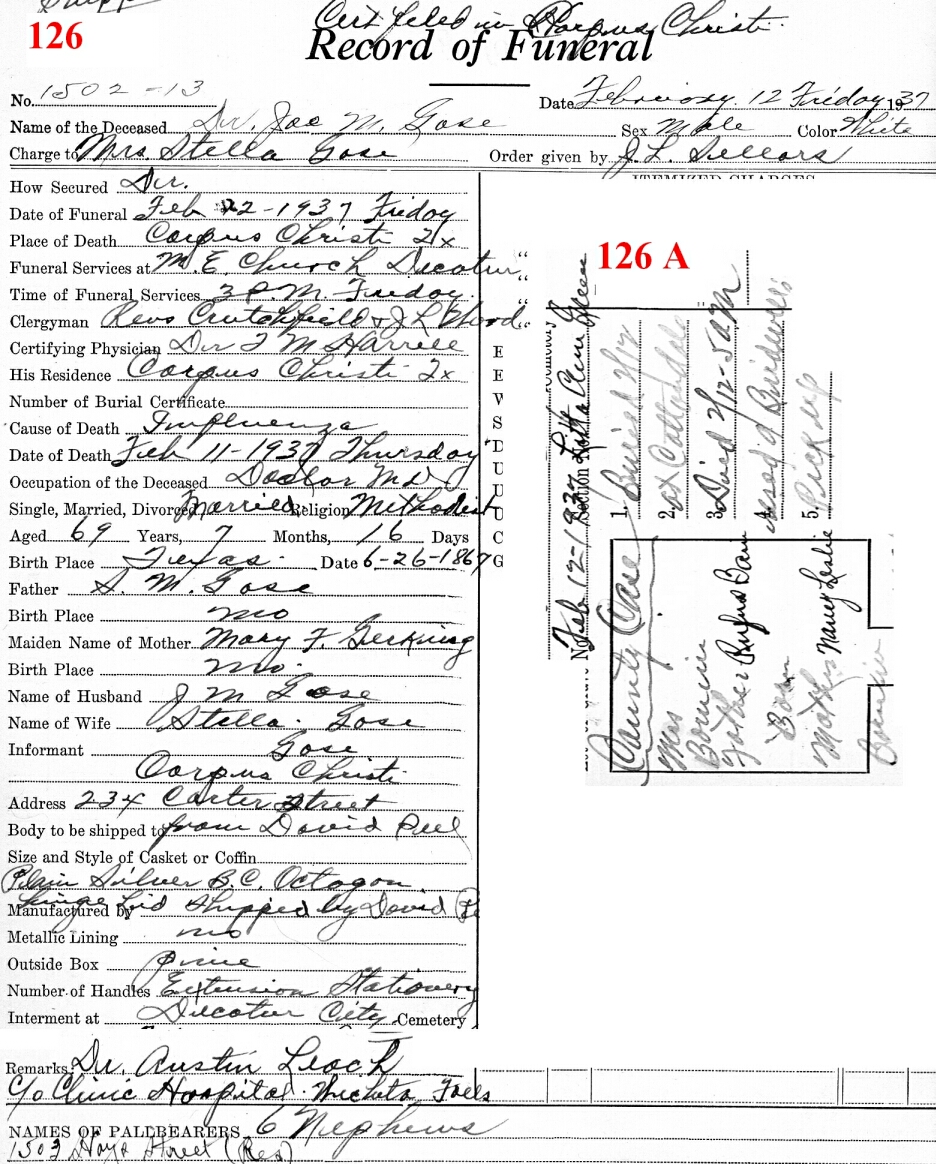 Cert filed in Corpus Christi
126
Record of Funeral
No. 1502-13
Date February 12 Friday 1937
Name of the Deceased Dr. Joe M. Gose Sex Male Color White
Charge to Mrs. Stella Gose Order given by J. L. Sellars
ITEMIZED CHARGES
How Secured Dir.
Date of Funeral Feb 12-1937 Friday
Place of Death Corpus Christi Tx
Funeral Services at M. E. Church Decatur
Time of Funeral Services 3 P.M. Friday
Clergyman Revs Crutchfield & J L
Certifying Physician Dr T M Harrell
His Residence Corpus Christi Tx
Number of Burial Certificate
Cause of Death Influenza
Date of Death Feb 11-1937 Thursday
Occupation of the Deceased Doctor MD
Single, Married, Divorced Married Religion Methodist
Aged 69 Years, 7 Months, 16 Days
Birth Place Texas Date 6-26-1867
Father S. M. Gose
Birth Place Mo
Maiden Name of Mother Mary F. Gerking
Birth Place Mo.
Name of Husband J M Gose
Name of Wife Stella Gose
Informant Gose
Corpus Christi
Address 234 Carter Street
Body to be shipped to from David Peel
Size and Style of Casket or Coffin
Plain Silver B.C. Octagon
Hinge Lid Shipped by David
Manufactured by
Metallic Lining no
Outside Box pine
Number of Handles Extension Stationery
Interment at Decatur City Cemetery
E
E
V
S
D
U
U
U
C
G
126 A
No. Feb 12-1937
Section Lotta Ann
1. Buried 2/12
2. at Cottondale
3. Died 2/12-5 AM
4.
5. Pick up
County Case
Mrs
Born in
Father Rufus Bain
Born
Mother Nancy Leslie
Born in
Remarks Dr. Austin Leach
c/o Clinic Hospital Wichita Falls
NAMES OF PALLBEARERS 6 Nephews
1503 Street (Res)